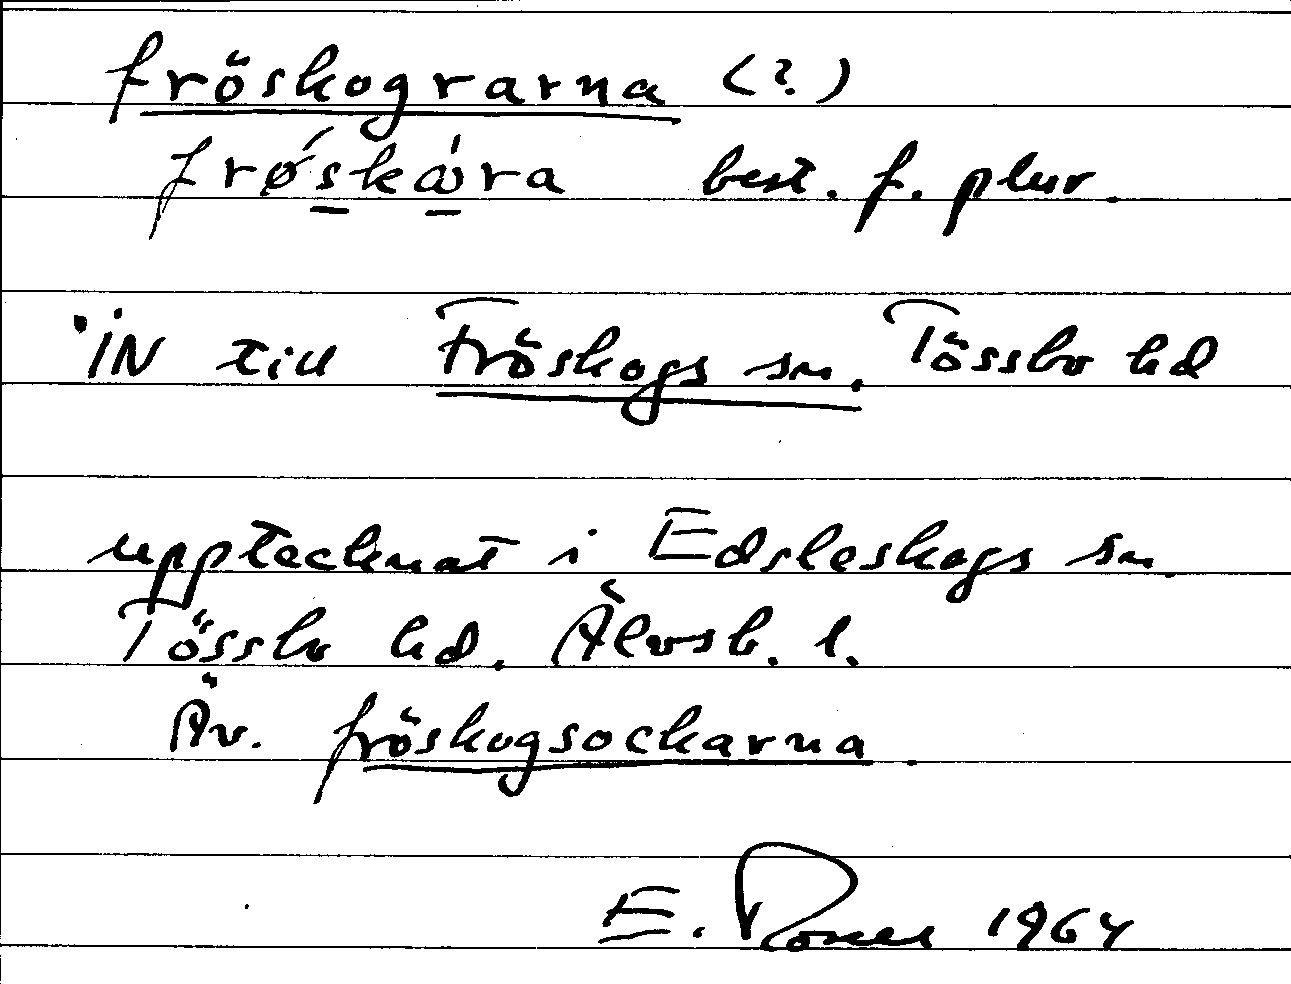 fröskograrna (?)
frǿskω̇ra best. f. plur.
iN till Fröskogs sn. Tössbo hd
upptecknat i Edsleskogs sn.
Tössbo hd. Älvsb. l.
Äv. fröskogsockarna.
E. 1964